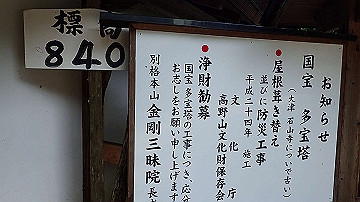 標高
840
お知らせ
国宝 多宝塔
(大津 石山寺についで古い)
●屋根葺き替え
並びに防災工事
平成二十四年 施工
文化庁
高野山文化財保存会
●浄財勧募
国宝多宝塔の工事につき、応分
お志しをお願い申し上げます
別格本山 金剛三昧院 長